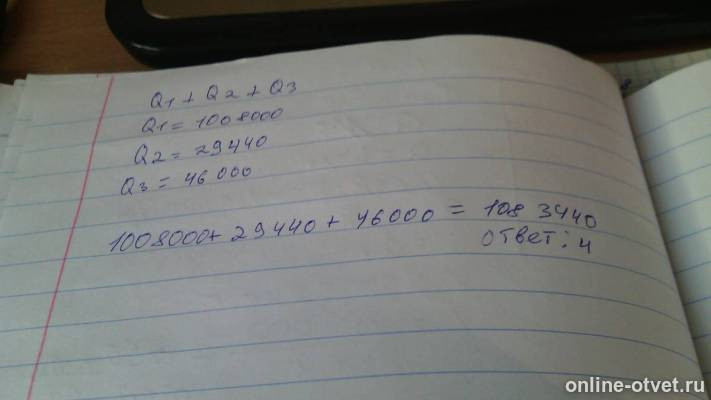 Q1 + Q2 + Q3
Q1 = 1008000
Q2 = 29440
Q3 = 46000
1008000 + 29440 + 46000 = 1083440
Ответ: 4
online-otvet.ru